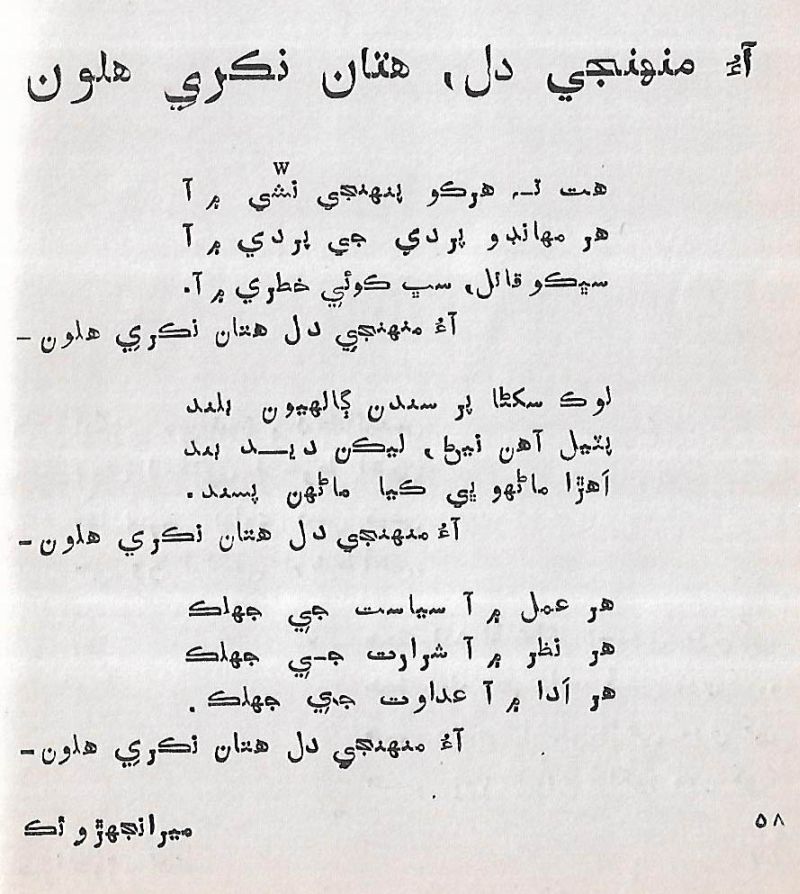 آءُ منهنجي دل، هتان نڪري هلون
W
هت تـ هرڪو پنهنجي نشي ۾ آ
هر مهانڊو پردي جي پردي ۾ آ
سڀڪو قاتل، سڀ ڪوئي خطري ۾ آ.
آءُ منهنجي دل هتان نڪري هلون –
لوڪ سڪڻا پر سندن ڳالهيون بلند
پٽيل آهن نيڻ، ليڪن ديـد بند
اَهڙا ماڻهو ٿي ڪيا ماڻهن پسند.
آءُ منهنجي دل هتان نڪري هلون –
هر عمل ۾ آ سياست جي جهلڪ
هر نظر ۾ آ شرارت جـي جهلڪ
هر اَدا ۾ آ عداوت جي جهلڪ.
آءُ منهنجي دل هتان نڪري هلون –
٥٨